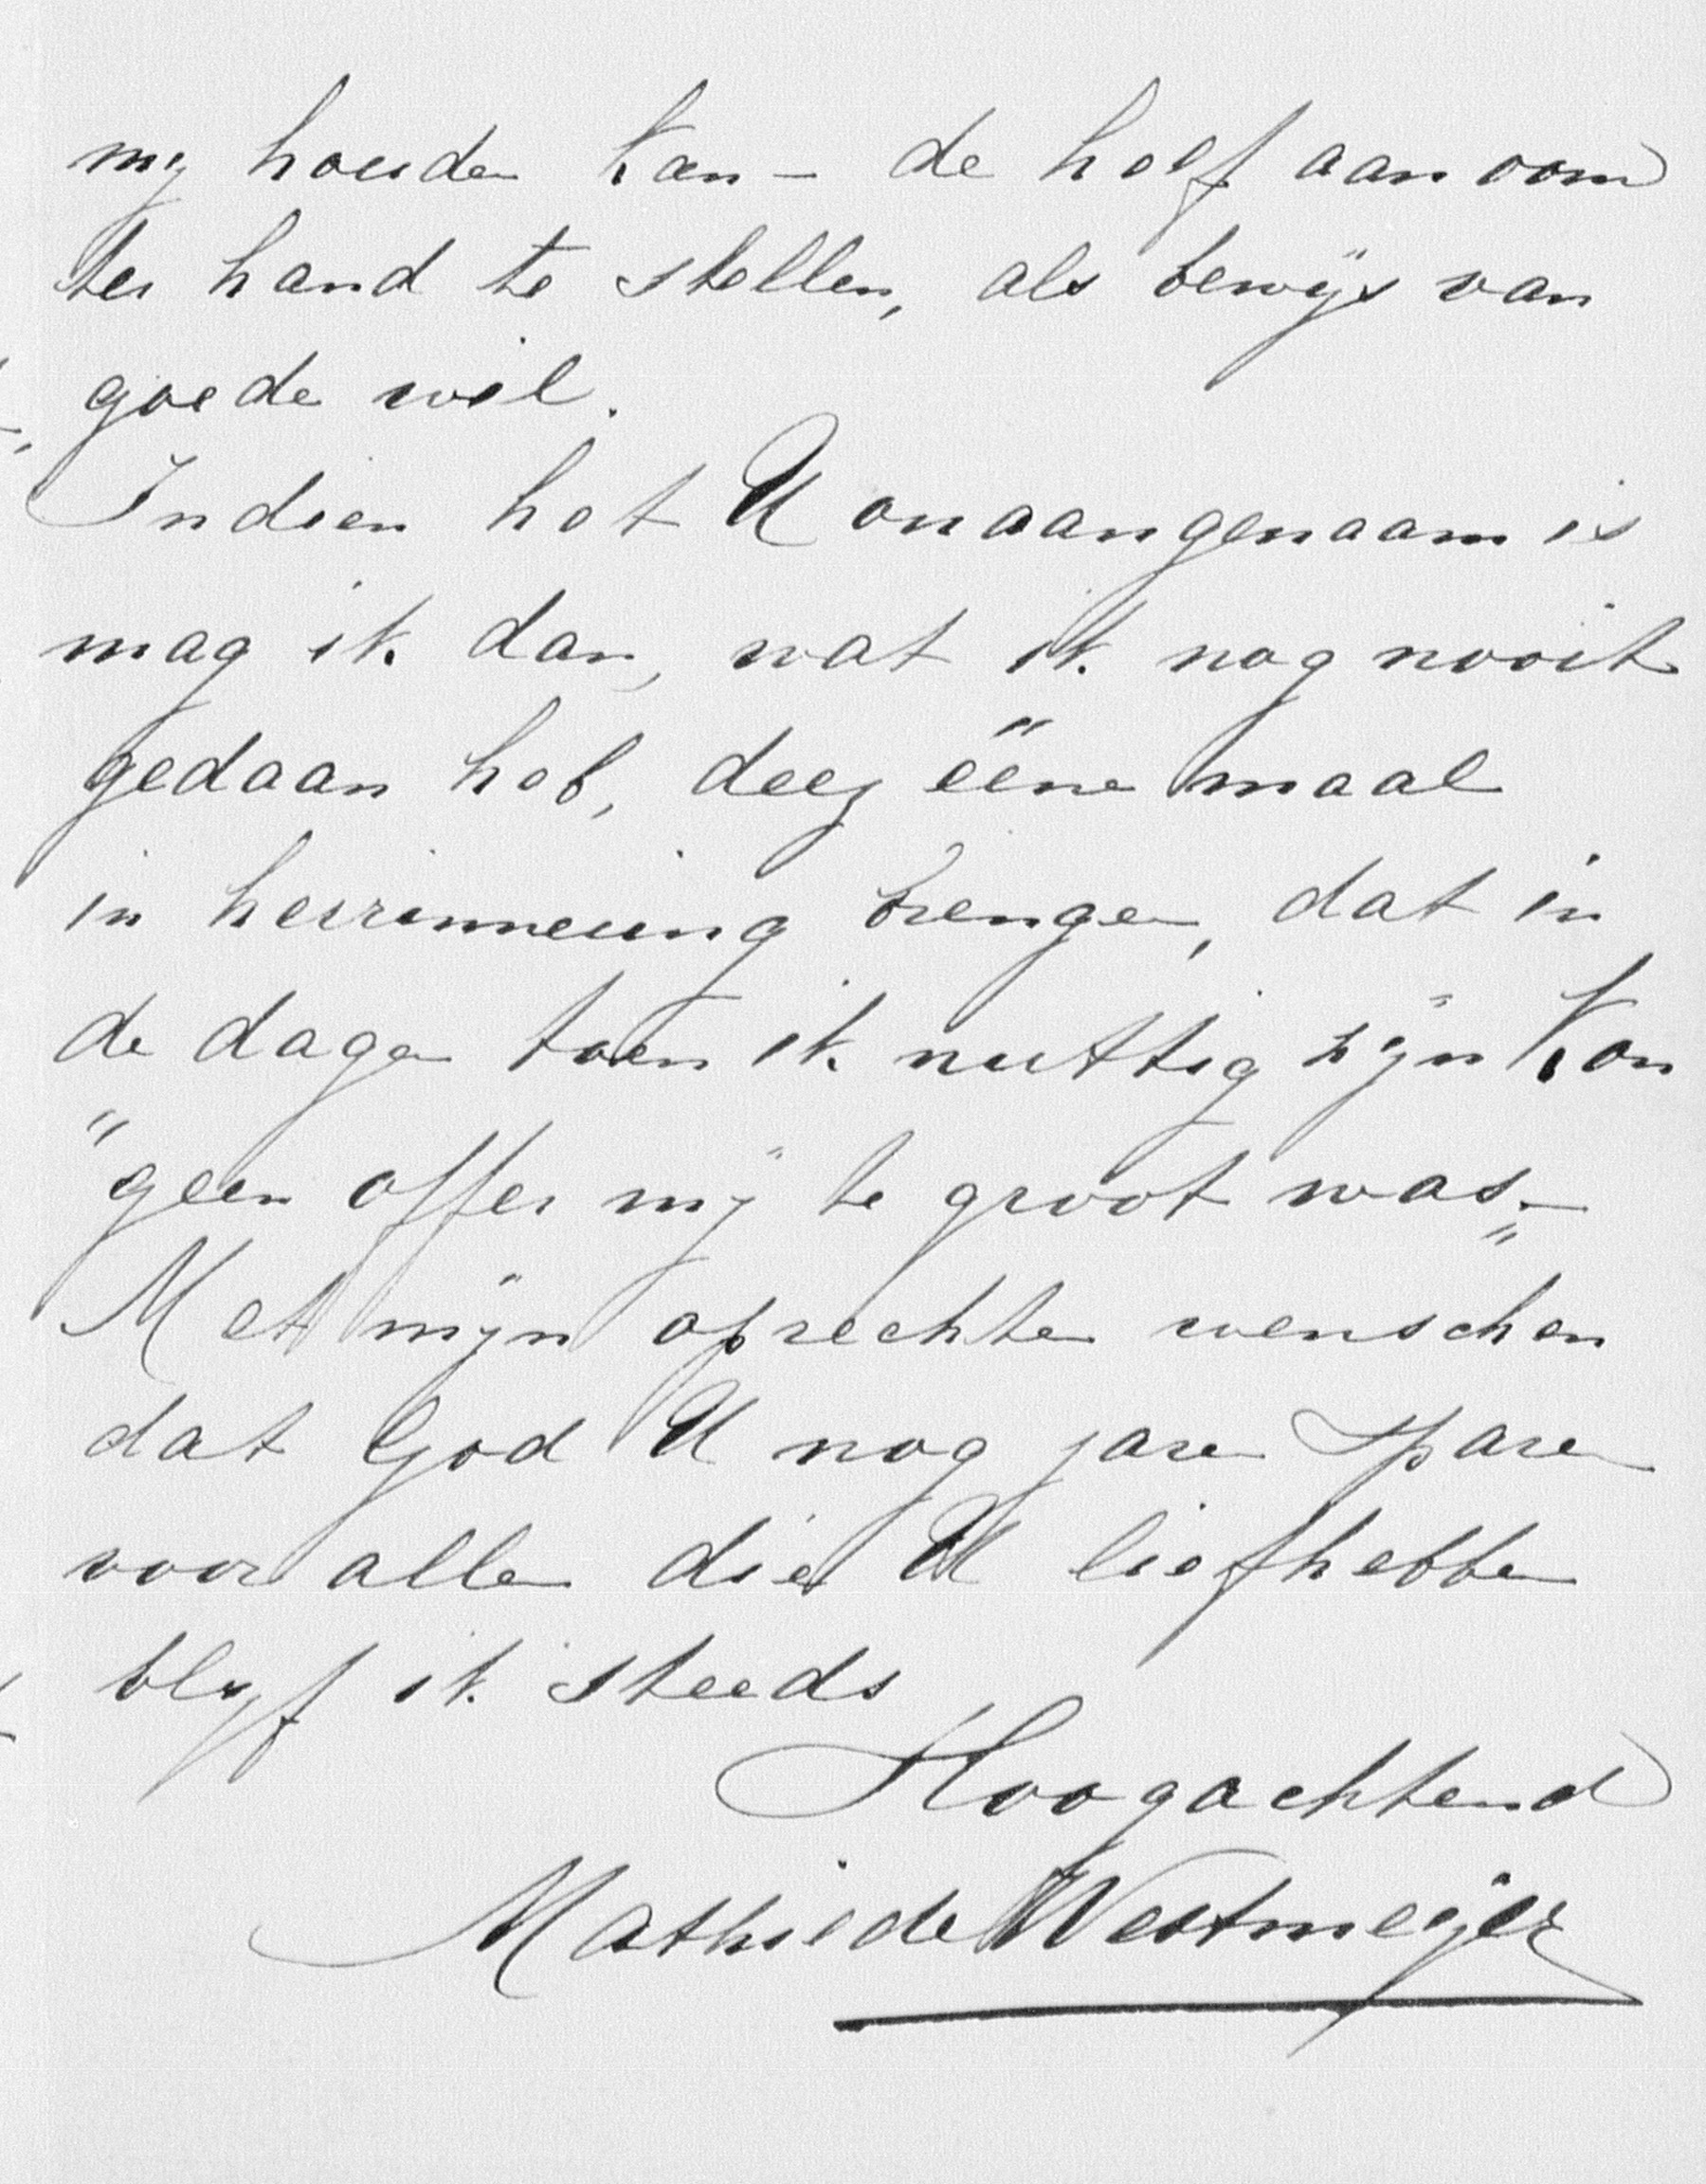 mij houden kan – de helft aan oom
ter hand te stellen, als bewijs van
goede wil.
Indien het U onaangenaam is
mag ik dan, wat ik nog nooit
gedaan heb, deez ééne maal
in herrinnering brengen, dat in
de dagen toen ik nuttig zijn kon
"geen offer mij te groot was."–
Met mijn oprechte wenschen
dat God U nog jaren spare
voor allen die U liefhebben
blijf ik steeds
Hoogachtend
Mathilde Westmeijer